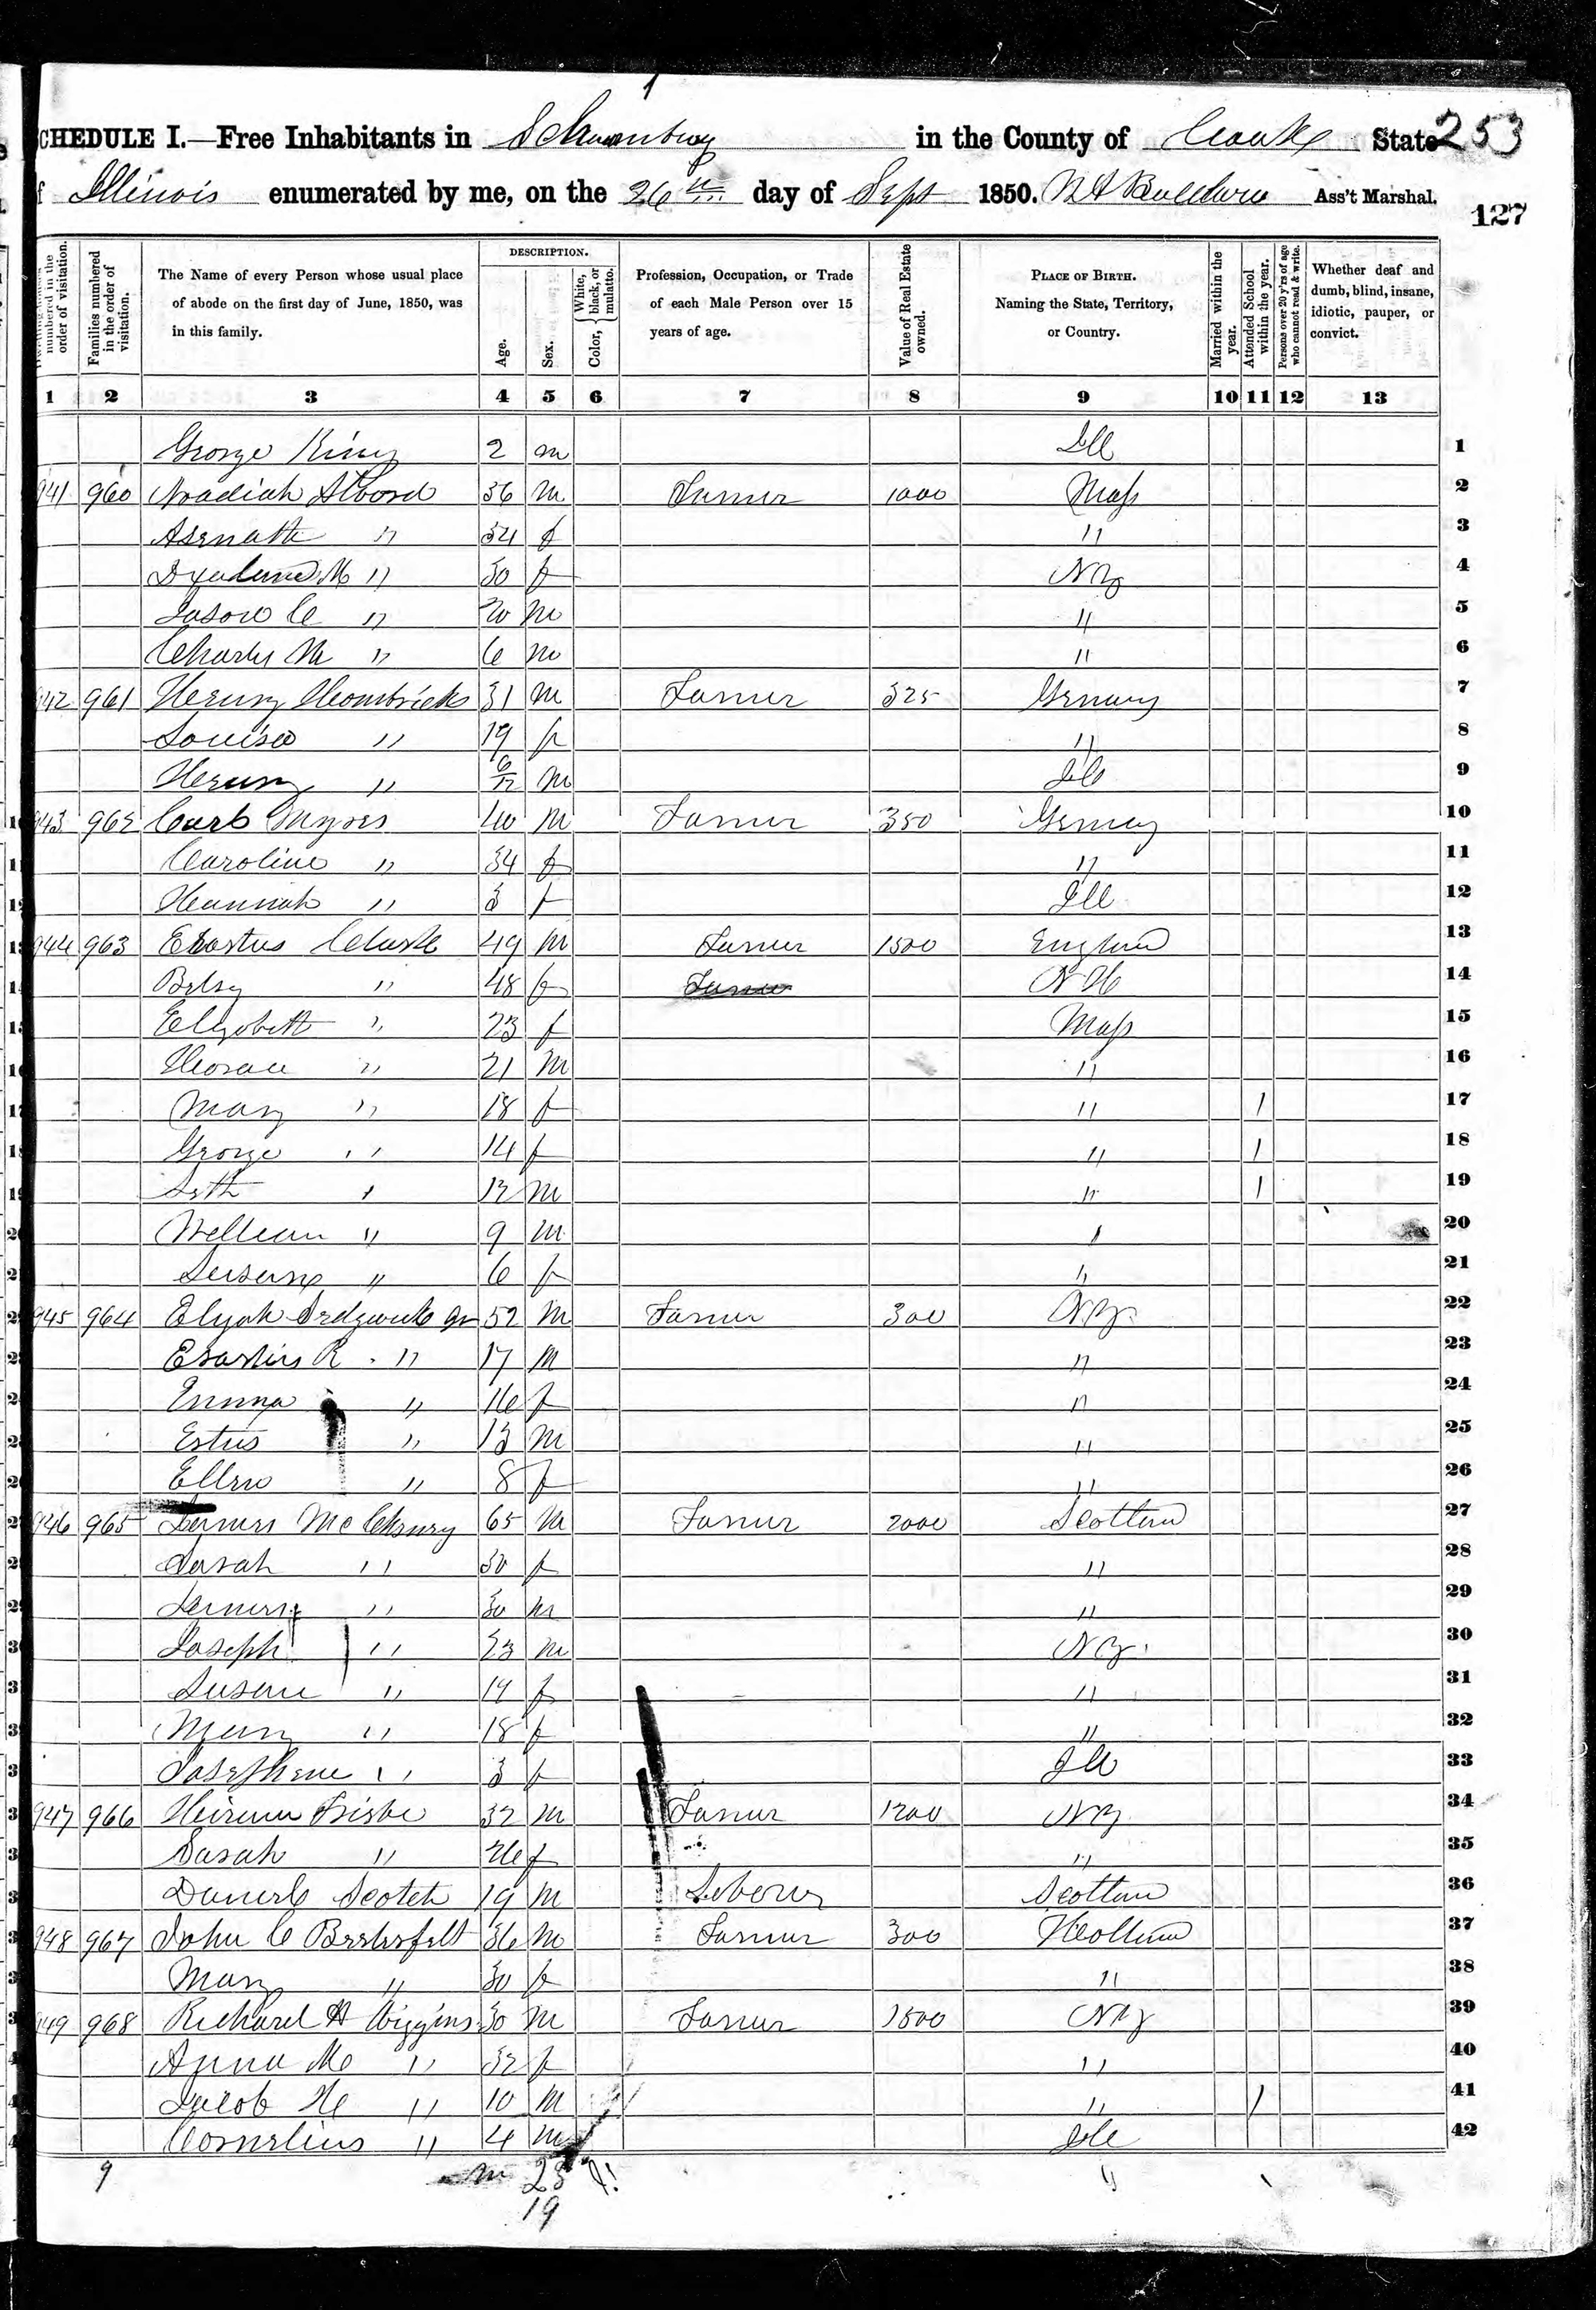 SCHEDULE I.—Free Inhabitants in Schaumburg in the County of Cook State 253
of Illinois enumerated by me, on the 26th day of Sept 1850. Ass't Marshal. 127
Dwelling-houses numbered in the order of visitation.
Families numbered in the order of visitation.
The Name of every Person whose usual place of abode on the first day of June, 1850, was in this family.
DESCRIPTION.
Age.
Sex.
Color, { White, black, or mulatto.
Profession, Occupation, or Trade of each Male Person over 15 years of age.
Value of Real Estate owned.
PLACE OF BIRTH. Naming the State, Territory, or Country.
Married within the year.
Attended School within the year.
Persons over 20 y'rs of age who cannot read & write.
Whether deaf and dumb, blind, insane, idiotic, pauper, or convict.
1 2 3 4 5 6 7 8 9 10 11 12 13
George King 2 m Ill 1
941 960 36 M Farmer 1000 Mass 2
Asenath " 34 f " 3
M " 30 f NY 4
Jason C " 20 M " 5
Charles M " 6 M " 6
942 961 Henry 31 M Farmer 325 Germany 7
Louisa " 19 f " 8
Henry " 6/12 M Ill 9
943 962 Carl Myers 40 M Farmer 350 Germany 10
Caroline " 34 f " 11
Hannah " 3 f Ill 12
944 963 Erastus Clark 49 M Farmer 1500 England 13
Betsy " 48 f Farmer N H 14
Elizabeth " 23 f Mass 15
Horace " 21 M " 16
Mary " 18 f " 1 17
George " 14 f " 1 18
Seth " 12 M " 1 19
William " 9 M " 20
" 6 f " 21
945 964 Elijah Sedgwick 52 M Farmer 300 NY 22
Erastus R. " 17 M " 23
Emma " 16 f " 24
Estus " 13 M " 25
Ellen " 8 f " 26
946 965 James 65 M Farmer 2000 Scotland 27
Sarah " 30 f " 28
James " 30 M " 29
Joseph " 23 M NY 30
Susan " 19 f " 31
Mary " 18 f " 32
Josephine " 3 f Ill 33
947 966 Hiram Frisbe 32 M Farmer 1200 NY 34
Sarah " 26 f " 35
Daniel Scotch 19 M Laborer Scotland 36
948 967 John C 36 M Farmer 300 Holland 37
Mary " 30 f " 38
949 968 Richard H Wiggins 30 M Farmer 1500 NY 39
Anna M " 32 f " 40
Jacob H " 10 M " 1 41
Cornelius " 4 M Ill 42
9 m 23 f
19